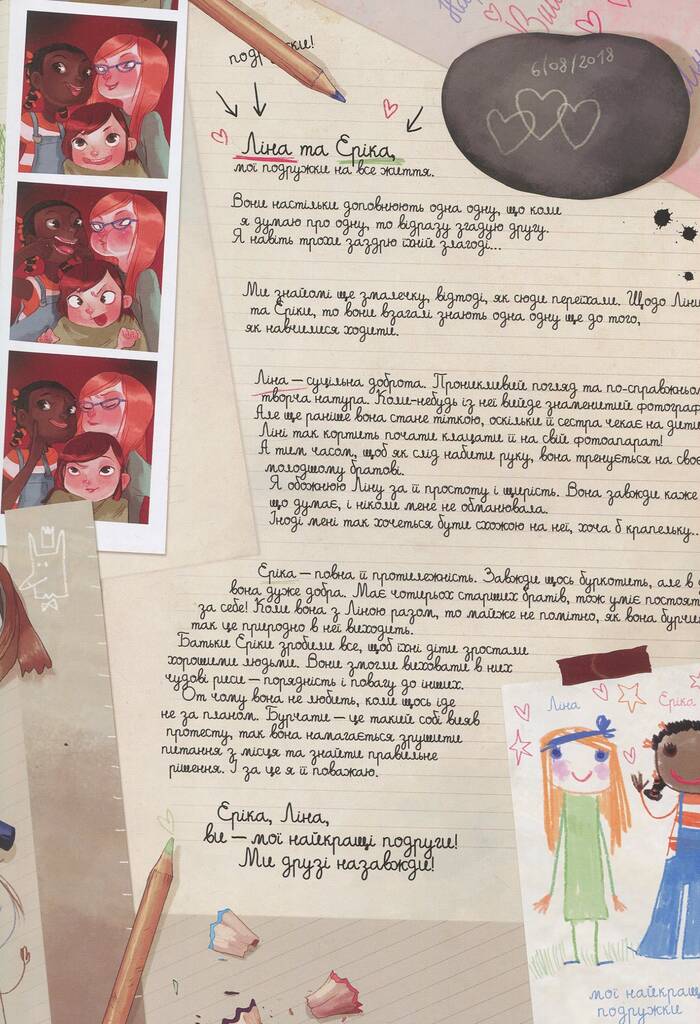 подружки!
6/08/2018
Ліна та Еріка,
мої подружки на все життя.
Вони настільки доповнюють одна одну, що коли
я думаю про одну, то відразу згадую другу.
Я навіть трохи заздрю їхній злагоді...
Ми знайомі ще змалечку, відтоді, як сюди переїхали. Щодо Ліни
та Еріки, то вони взагалі знають одна одну ще до того,
як навчилися ходити.
Ліна — суцільна доброта. Проникливий погляд та по-справжньо
творча натура. Коли-небудь із неї вийде знаменитий фотограф
Але ще раніше вона стане тіткою, оскільки її сестра чекає на дити
Ліні так кортить почати клацати її на свій фотоапарат!
А тим часом, щоб як слід набити руку, вона тренується на своє
молодшому братові.
Я обожнюю Ліну за її простоту і щирість. Вона завжди каже
що думає, і ніколи мене не обманювала.
Іноді мені так хочеться бути схожою на неї, хоча б крапельку...
Еріка — повна її протилежність. Завжди щось буркотить, але в д
вона дуже добра. Має чотирьох старших братів, тож уміє постоят
за себе! Коли вона з Ліною разом, то майже не помітно, як вона бурчи
так це природно в неї виходить.
Батьки Еріки зробили все, щоб їхні діти зростали
хорошими людьми. Вони змогли виховати в них
чудові риси — порядність і повагу до інших.
От чому вона не любить, коли щось іде
не за планом. Бурчати — це такий собі вияв
протесту, так вона намагається зрушити
питання з місця та знайти правильне
рішення. І за це я її поважаю.
Еріка, Ліна,
ви — мої найкращі подруги!
Ми друзі назавжди!
Ліна
Еріка
мої найкращ
подружки